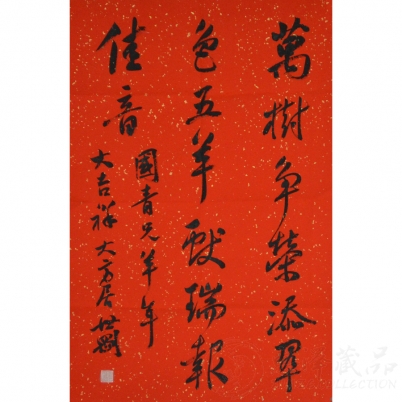 萬樹争榮添翠
色五羊獻瑞報
佳音
國青兄羊年
大吉祥 大方居世剛
藏品
LLECTION